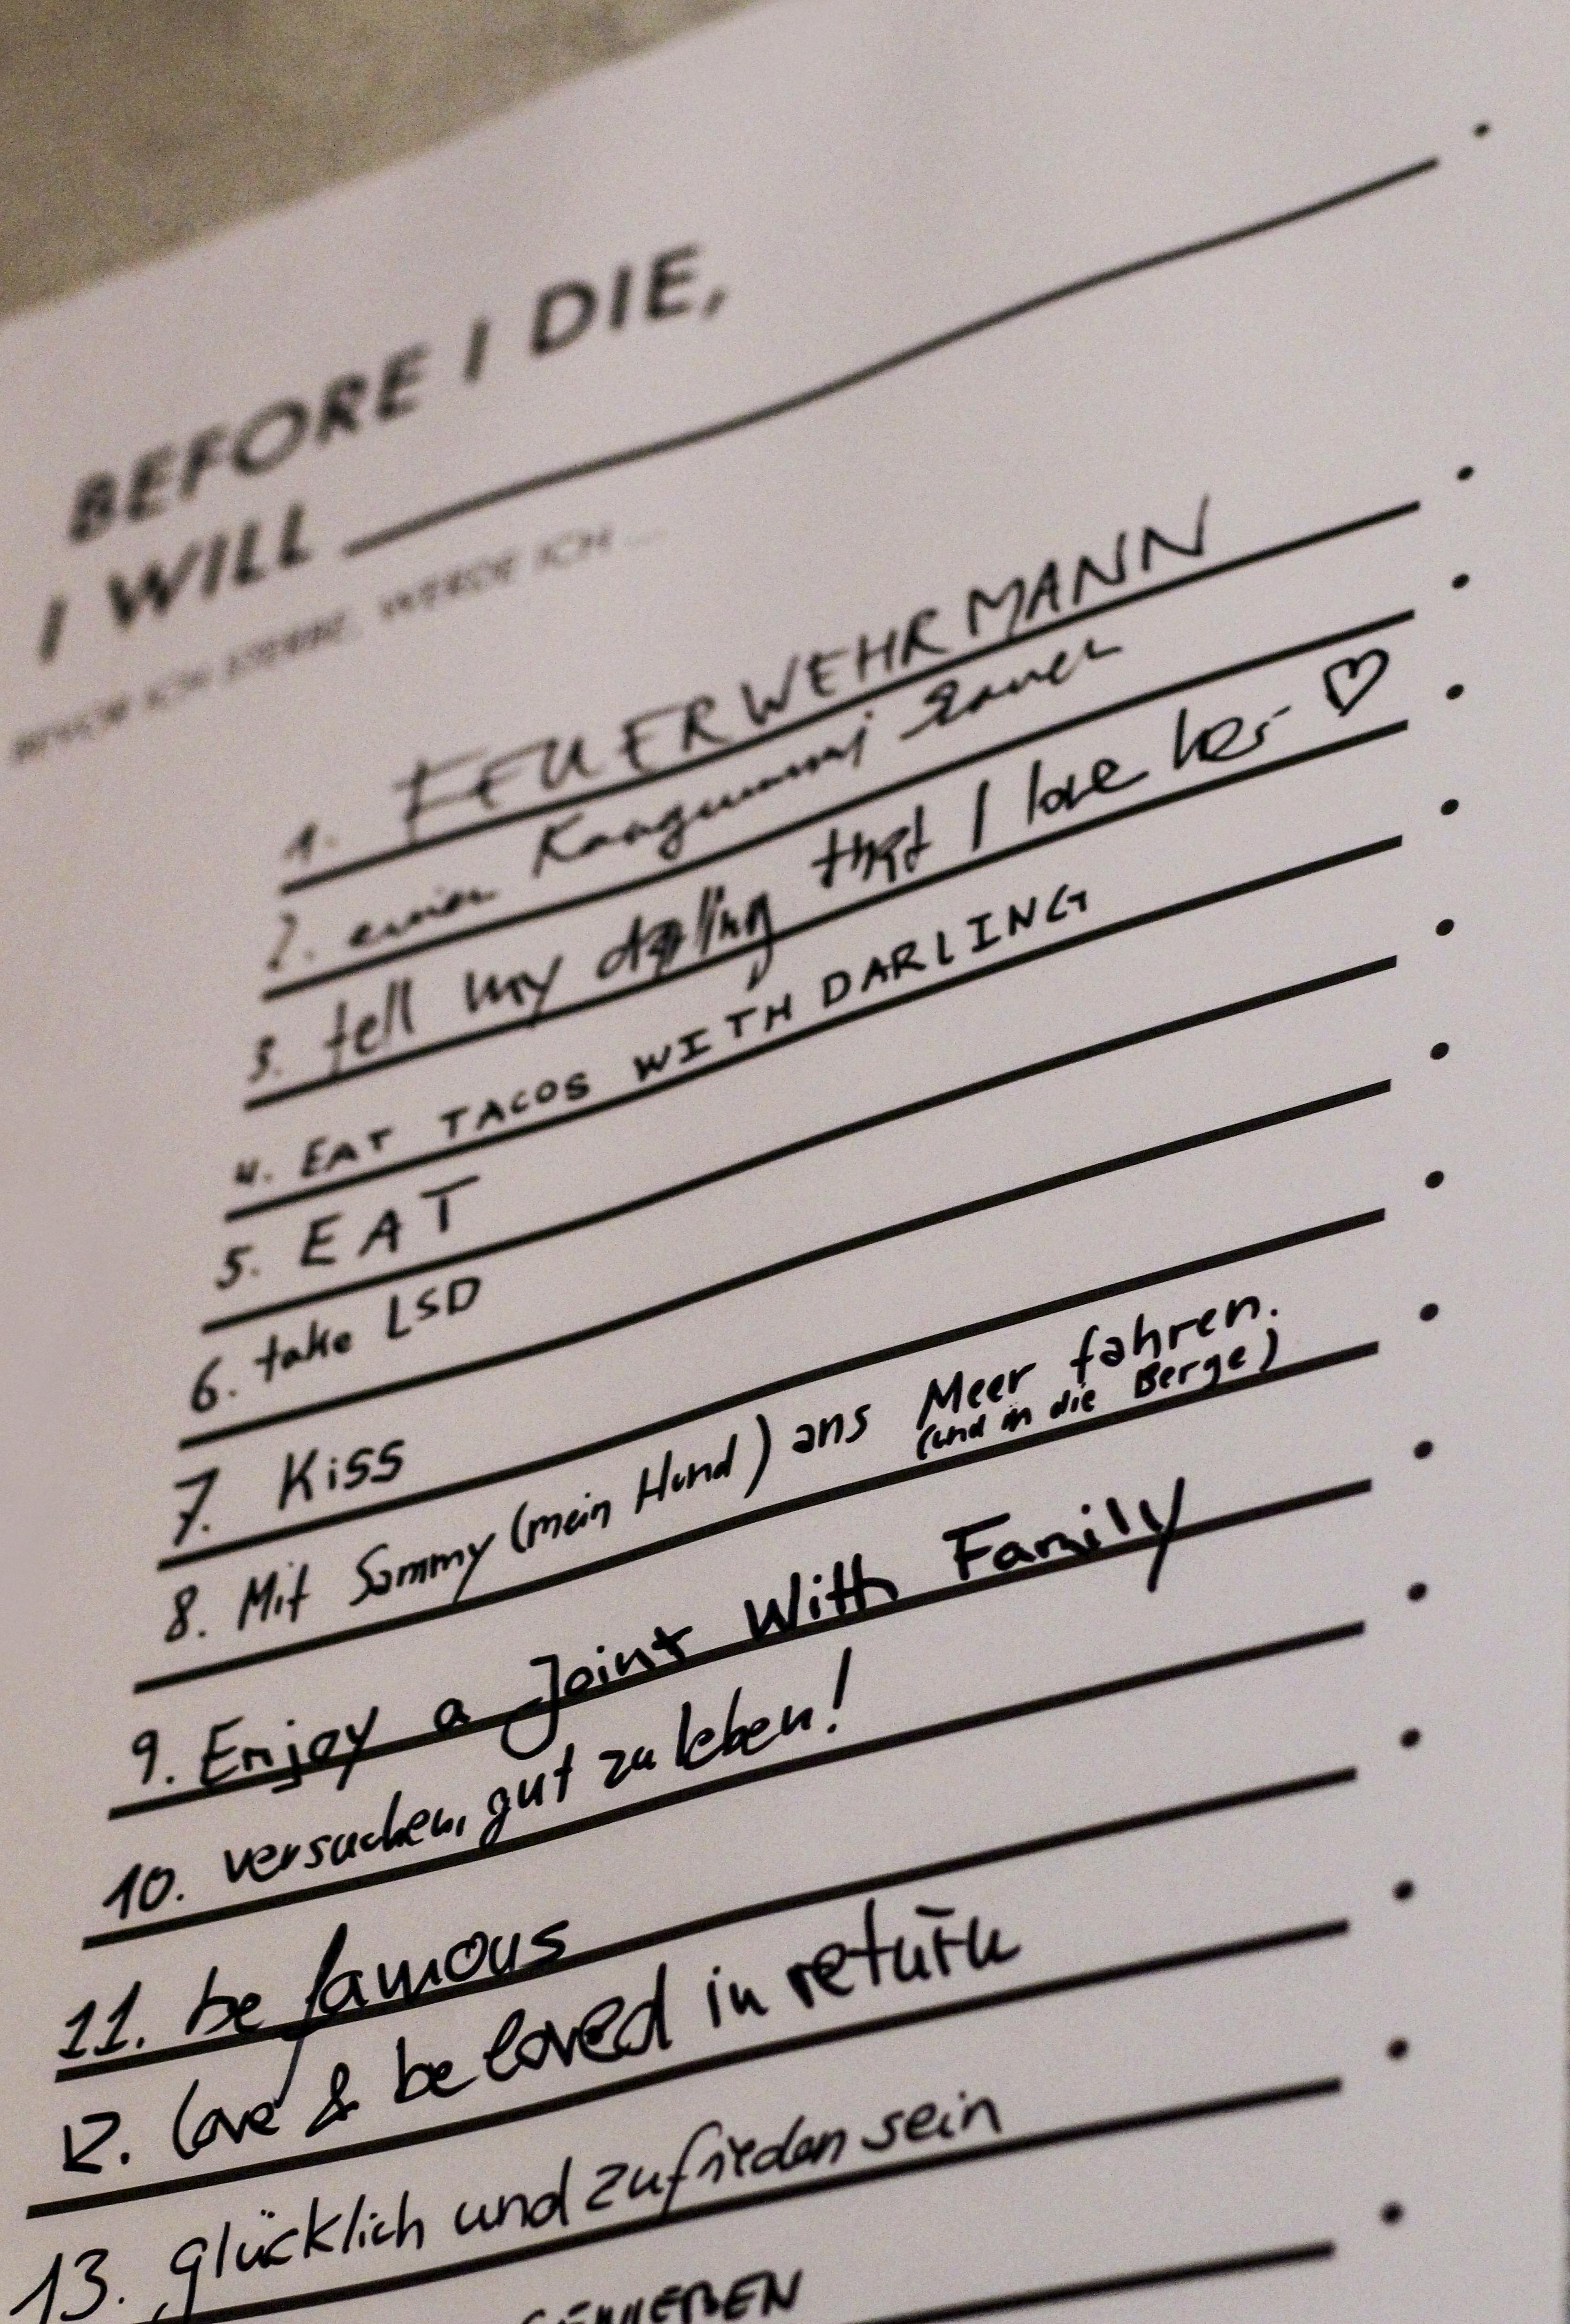 BEFORE I DIE,
I WILL
BEVOR ICH STERBE, WERDE ICH ...
1. FEUERWEHRMANN
2. einen Kaugummi
3. tell my darling that I love her ♡
4. EAT TACOS WITH DARLING
5. EAT
6. take LSD
7. Kiss
8. Mit Sammy (mein Hund) ans Meer fahren.
(und in die Berge)
9. Enjoy a Joint With Family
10. versuchen, gut zu leben!
11. be famous
12. love & be loved in return
13. glücklich und zufrieden sein
GENIEßEN